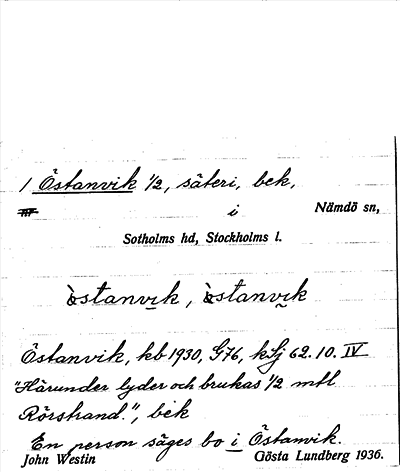 1 Östanvik 1/2, säteri, bek,
i Nämdö sn,
Sotholms hd, Stockholms l.
òstanvik, òstanvik
Östanvik, kb 1930, G76, k Lj 62.10. IV
"Härunder lyder och brukas 1/2 mtl
Rörstrand.", bek
En person säges bo i Östanvik.
John Westin Gösta Lundberg 1936.